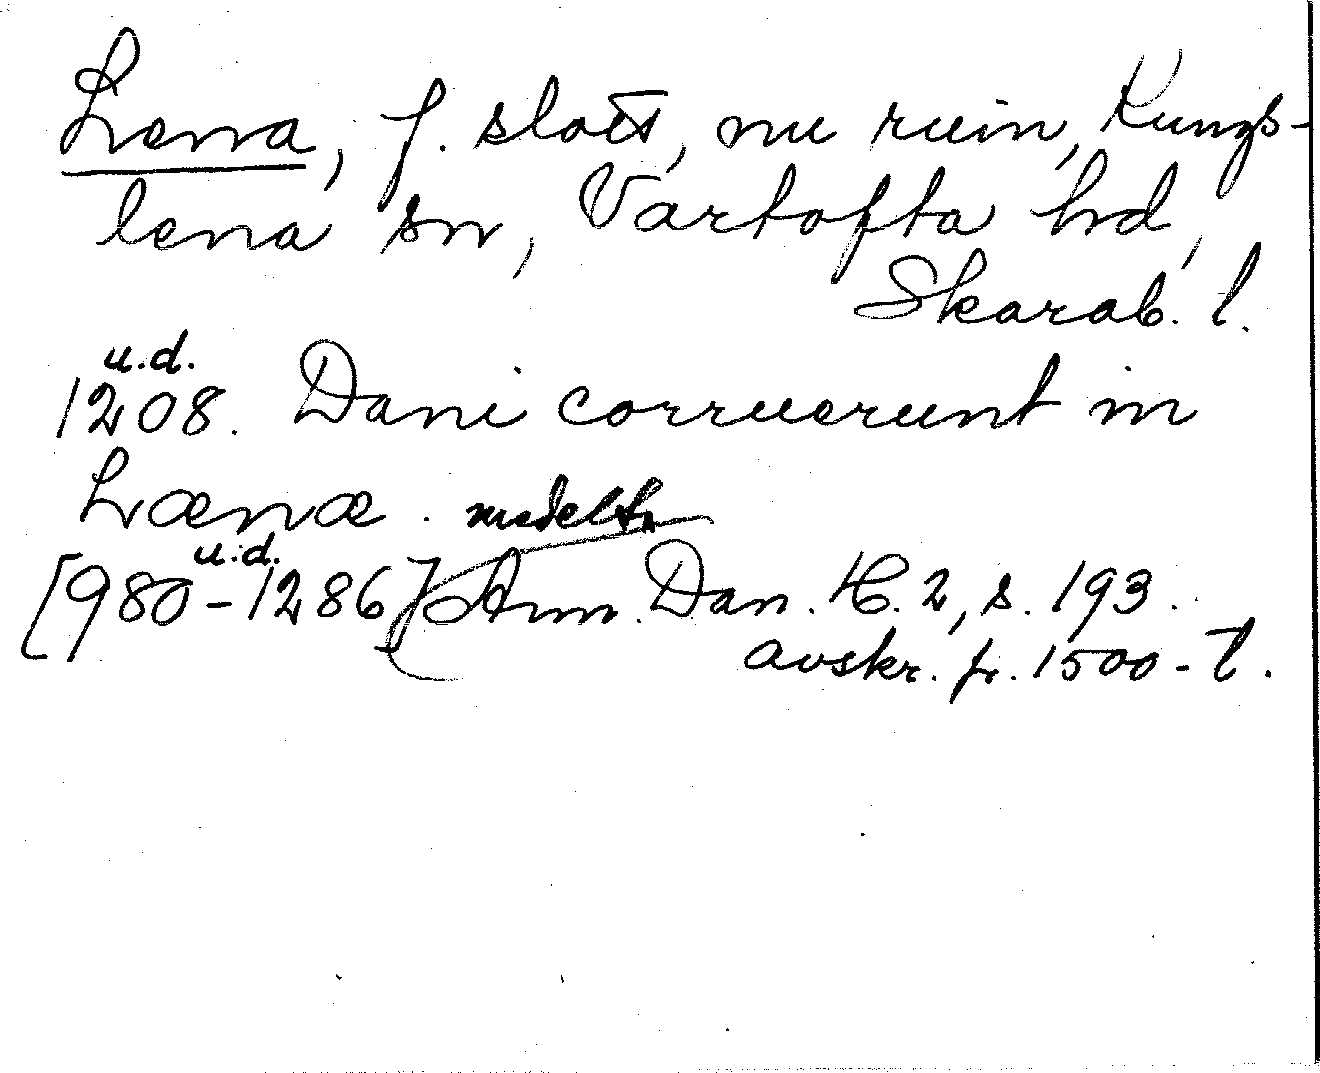 Lena, f. slott, nu ruin, Kungs-
lena sn, Vartofta hd,
Skarab. l.
u.d.
1208. Dani corruerunt in
Lænæ.
u.d.
[980-1286] Ann. Dan. H. 2, s. 193.
avskr. fr. 1500-t.